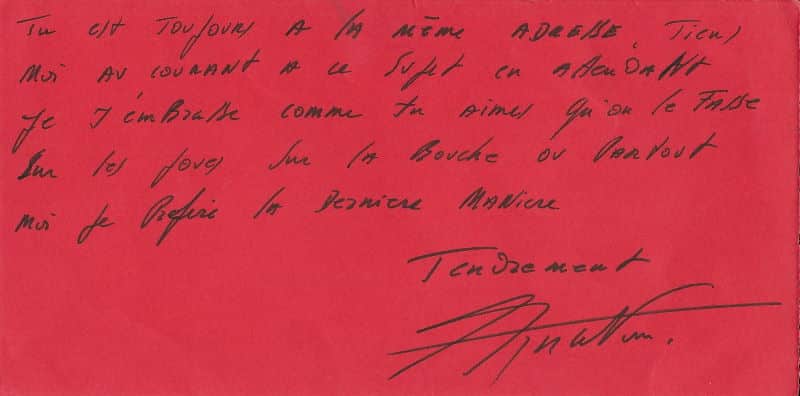 Tu est Toujours A la même ADRESSE, Tiens
Moi au courant A ce Sujet en AttenDANt
Je T'emBrasse comme tu aimes qu'on le FASSE
Sur les joues Sur la Bouche ou PARTOUT
Moi je Prefere la DerNiere MANiere
Tendrement